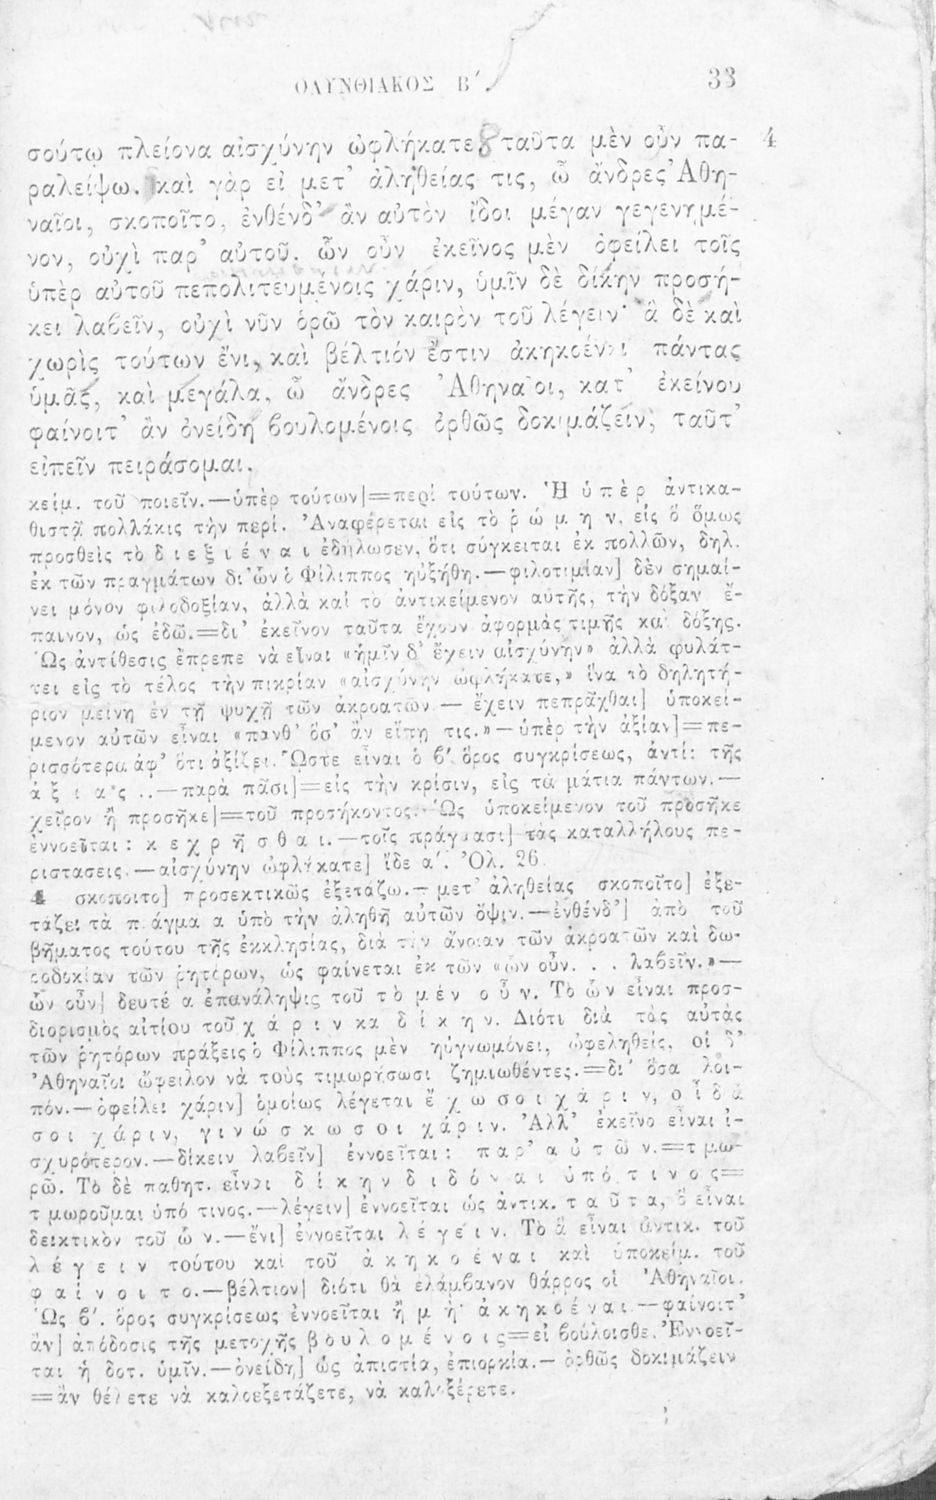 ΟΛΥΝΘΙΑΚΟΣ Β΄
33
σούτῳ πλείονα αἰσχύνην ὠφλήκατε. ταῦτα μὲν οὖν πα-
4
ραλείψω. καὶ γὰρ εἰ μετ᾽ ἀληθείας τις, ὦ ἄνδρες Ἀθη-
ναῖοι, σκοποῖτο, ἐνθένδ᾽ ἂν αὐτὸν ἴδοι μέγαν γεγενημέ-
νον, οὐχὶ παρ᾽ αὐτοῦ. ὧν οὖν ἐκεῖνος μὲν ὀφείλει τοῖς
ὑπὲρ αὐτοῦ πεπολιτευμένοις χάριν, ὑμῖν δὲ δίκην προσή-
κει λαβεῖν, οὐχὶ νῦν ὁρῶ τὸν καιρὸν τοῦ λέγειν· ἃ δὲ καὶ
χωρὶς τούτων ἔνι, καὶ βέλτιόν ἔστιν ἀκηκοέναι πάντας
ὑμᾶς, καὶ μεγάλα, ὦ ἄνδρες Ἀθηναῖοι, κατ᾽ ἐκείνου
φαίνοιτ᾽ ἂν ὀνείδη βουλομένοις ὀρθῶς δοκιμάζειν, ταῦτ᾽
εἰπεῖν πειράσομαι.
κείμ. τοῦ ποιεῖν.—ὑπὲρ τούτων]=περὶ τούτων. Ἡ ὑ π ὲ ρ ἀντικα-
θιστᾷ πολλάκις τὴν περί. Ἀναφέρεται εἰς τὸ ῥ ώ μ η ν, εἰς ὃ ὅμως
προσθεὶς τὸ δ ι ε ξ ι έ ν α ι ἐδήλωσεν, ὅτι σύγκειται ἐκ πολλῶν, δηλ.
ἐκ τῶν πραγμάτων δι᾽ ὧν ὁ Φίλιππος ηὐξήθη.—φιλοτιμίαν] δὲν σημαί-
νει μόνον φιλοδοξίαν, ἀλλὰ καὶ τὸ ἀντικείμενον αὐτῆς, τὴν δόξαν ἔ-
παινον, ὡς ἐδῶ.=δι᾽ ἐκεῖνον ταῦτα ἔχουν ἀφορμὰς τιμῆς καὶ δόξης.
Ὡς ἀντίθεσις ἔπρεπε νὰ εἶναι «ἡμῖν δ᾽ ἔχειν αἰσχύνην» ἀλλὰ φυλάτ-
τει εἰς τὸ τέλος τὴν πικρίαν «αἰσχύνην ὠφλήκατε,» ἵνα τὸ δηλητή-
ριον μείνῃ ἐν τῇ ψυχῇ τῶν ἀκροατῶν — ἔχειν πεπρᾶχθαι] ὑποκεί-
μενον αὐτῶν εἶναι «πανθ᾽ ὅσ᾽ ἂν εἴπῃ τις.»—ὑπὲρ τὴν ἀξίαν]=πε-
ρισσότερα ἀφ᾽ ὅτι ἀξίζει. Ὥστε εἶναι ὁ β΄. ὅρος συγκρίσεως, ἀντί: τῆς
ἀ ξ ί α ς ..—παρὰ πᾶσι]=εἰς τὴν κρίσιν, εἰς τὰ μάτια πάντων.—
χεῖρον ἢ προσῆκε]=τοῦ προσήκοντος. Ὡς ὑποκείμενον τοῦ προσῆκε
ἐννοεῖται: κ ε χ ρ ῆ σ θ α ι.—τοῖς πράγμασι] τὰς καταλλήλους πε-
ριστασεις.—αἰσχύνην ὠφλήκατε] ἴδε α΄. Ὀλ. 26.
4 σκοποιτο] προσεκτικῶς ἐξετάζω.— μετ᾽ ἀληθείας σκοποῖτο] ἐξε-
τάζει τὰ πράγματα ὑπὸ τὴν ἀληθῆ αὐτῶν ὄψιν.—ἐνθένδ᾽] ἀπὸ τοῦ
βήματος τούτου τῆς ἐκκλησίας, διὰ τὴν ἄνοιαν τῶν ἀκροατῶν καὶ δω-
ροδοκίαν τῶν ῥητόρων, ὡς φαίνεται ἐκ τῶν «ὧν οὖν. . . λαβεῖν.»—
ὧν οὖν] δευτέρα ἐπανάληψις τοῦ τὸ μ έ ν ο ὖ ν. Τὸ ὧν εἶναι προσ-
διορισμὸς αἰτίου τοῦ χ ά ρ ι ν κα δ ί κ η ν. Διότι διὰ τὰς αὐτὰς
τῶν ῥητόρων πράξεις ὁ Φίλιππος μὲν ηὐγνωμόνει, ὠφεληθείς, οἱ δ᾽
Ἀθηναῖοι ὤφειλον νὰ τοὺς τιμωρήσωσι ζημιωθέντες.=δι᾽ ὅσα λοι-
πόν.—ὀφείλει χάριν] ὁμοίως λέγεται ἔ χ ω σ ο ι χ ά ρ ι ν, ο ἶ δ ά
σ ο ι χ ά ρ ι ν, γ ι ν ώ σ κ ω σ ο ι χάριν. Ἀλλ᾽ ἐκεῖνο εἶναι ἰ-
σχυρότερον.—δίκειν λαβεῖν] ἐννοεῖται: π α ρ᾽ α ὐ τ ῶ ν.=τιμω-
ρῶ. Τὸ δὲ παθητ. εἶναι δ ί κ η ν δ ι δ ό ν α ι ὑ π ό τ ι ν ο ς=
τιμωροῦμαι ὑπό τινος.—λέγειν] ἐννοεῖται ὡς ἀντικ. τ α ῦ τ α, ὃ εἶναι
δεικτικὸν τοῦ ὧ ν.—ἔνι] ἐννοεῖται λ έ γ ε ι ν. Τὸ ἃ εἶναι ἀντικ. τοῦ
λ έ γ ε ι ν τούτου καὶ τοῦ ἀ κ η κ ο έ ν α ι καὶ ὑποκείμ. τοῦ
φ α ί ν ο ι τ ο.—βέλτιον] διότι θὰ ἐλάμβανον θάρρος οἱ Ἀθηναῖοι.
Ὡς β΄. ὅρος συγκρίσεως ἐννοεῖται ἢ μ ὴ ἀ κ η κ ο έ ν α ι.—φαίνοιτ᾽
ἂν] ἀπόδοσις τῆς μετοχῆς β ο υ λ ο μ έ ν ο ι ς=εἰ βούλοισθε. Ἐννοεῖ-
ται ἡ δοτ. ὑμῖν.—ὀνείδη] ὡς ἀπιστία, ἐπιορκία.— ὀρθῶς δοκιμάζειν
=ἂν θέλετε νὰ καλοεξετάζετε, νὰ καλοξέρετε.